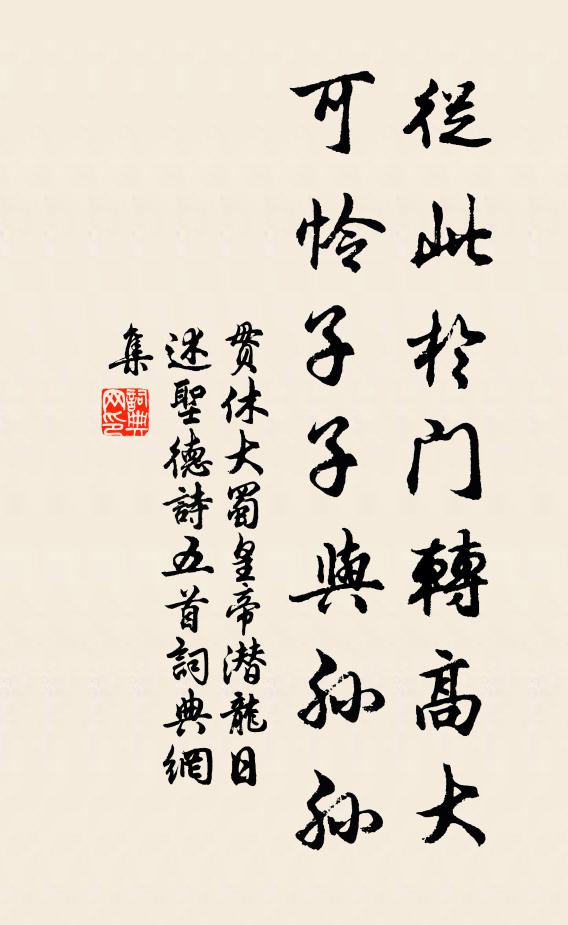 從此於門轉高大
可怜子子與孫孫
貫休大蜀皇帝潜龍日
述聖德詩五首詞典網
集
詞典
网印